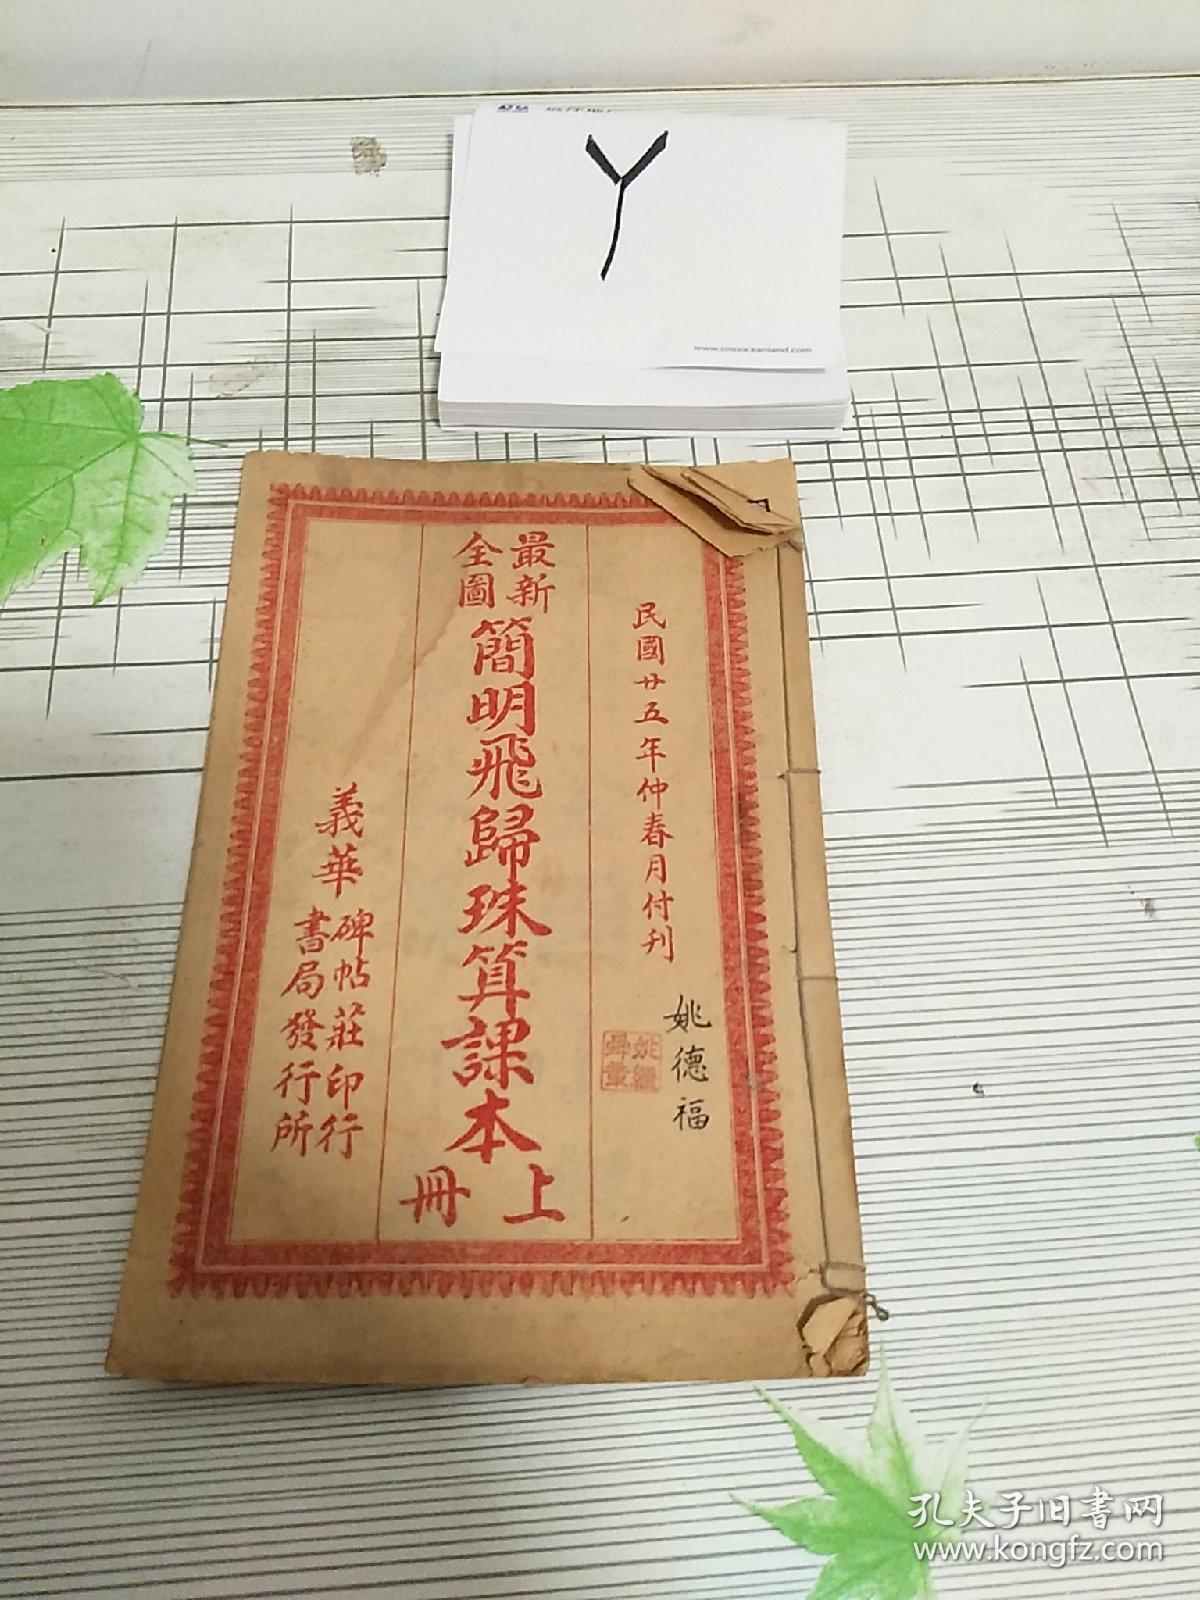 Y
www.sinooceanland.com
民國廿五年仲春月付刋
姚德福
最新
全圖
簡明飛歸珠算課本
上冊
義華
碑帖莊印行
書局發行所
孔夫子旧书网
www.kongfz.com